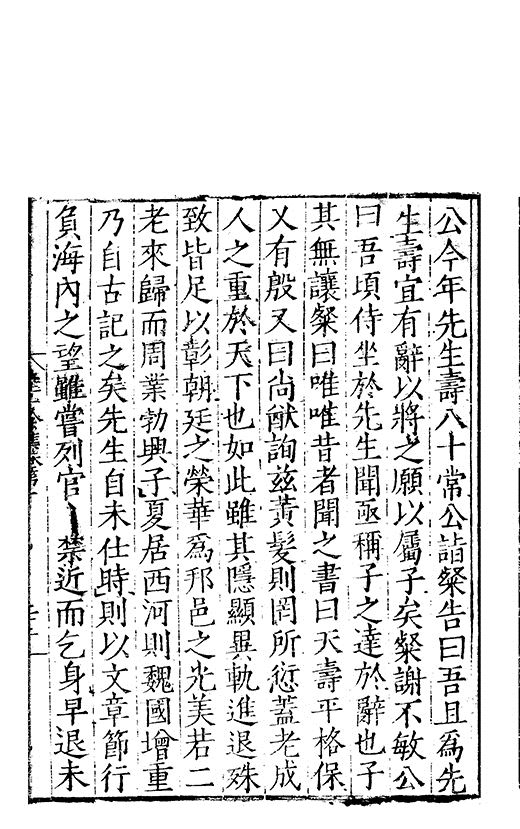 公今年先生壽八十常公詣粲告曰吾且爲先
生壽宜有辭以將之願以屬子矣粲謝不敏公
曰吾頃侍坐於先生聞亟稱子之達於辭也子
其無讓粲曰唯唯昔者聞之書曰天壽平格保
乂有殷又曰尚猷詢兹黃髮則罔所愆蓋老成
人之重於天下也如此雖其隱顯異軌進退殊
致皆足以彰朝廷之榮華爲邦邑之光美若二
老來歸而周業勃興子夏居西河則魏國增重
乃自古記之矣先生自未仕時則以文章節行
負海內之望雖嘗列官禁近而乞身早退未